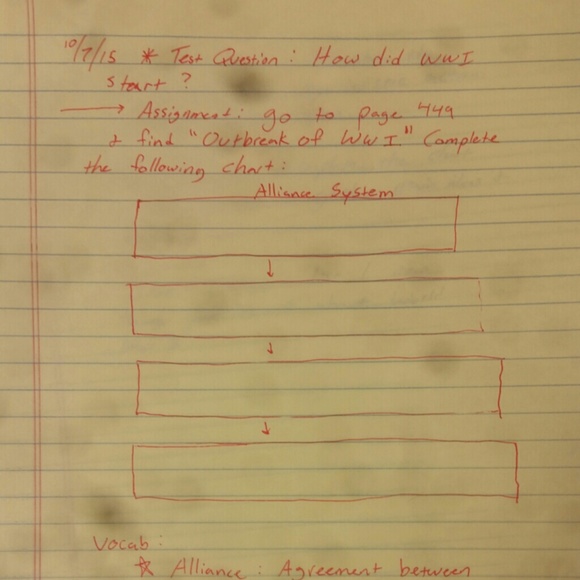 10/7/15 * Test Question: How did WWI
start?
→ Assignment: go to page 449
& find "Outbreak of WWI" Complete
the following chart:
Alliance System
↓
↓
↓
Vocab:
☆ Alliance: Agreement between